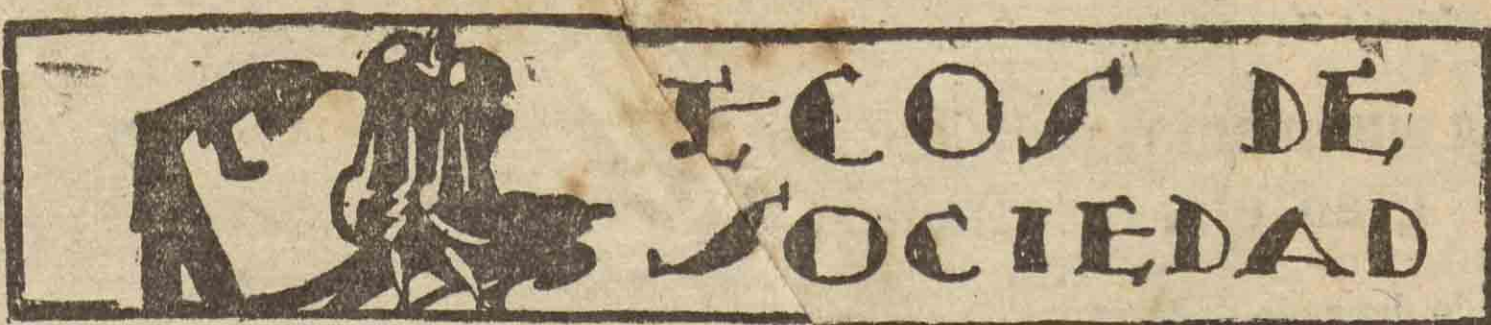 ECOS DE
SOCIEDAD